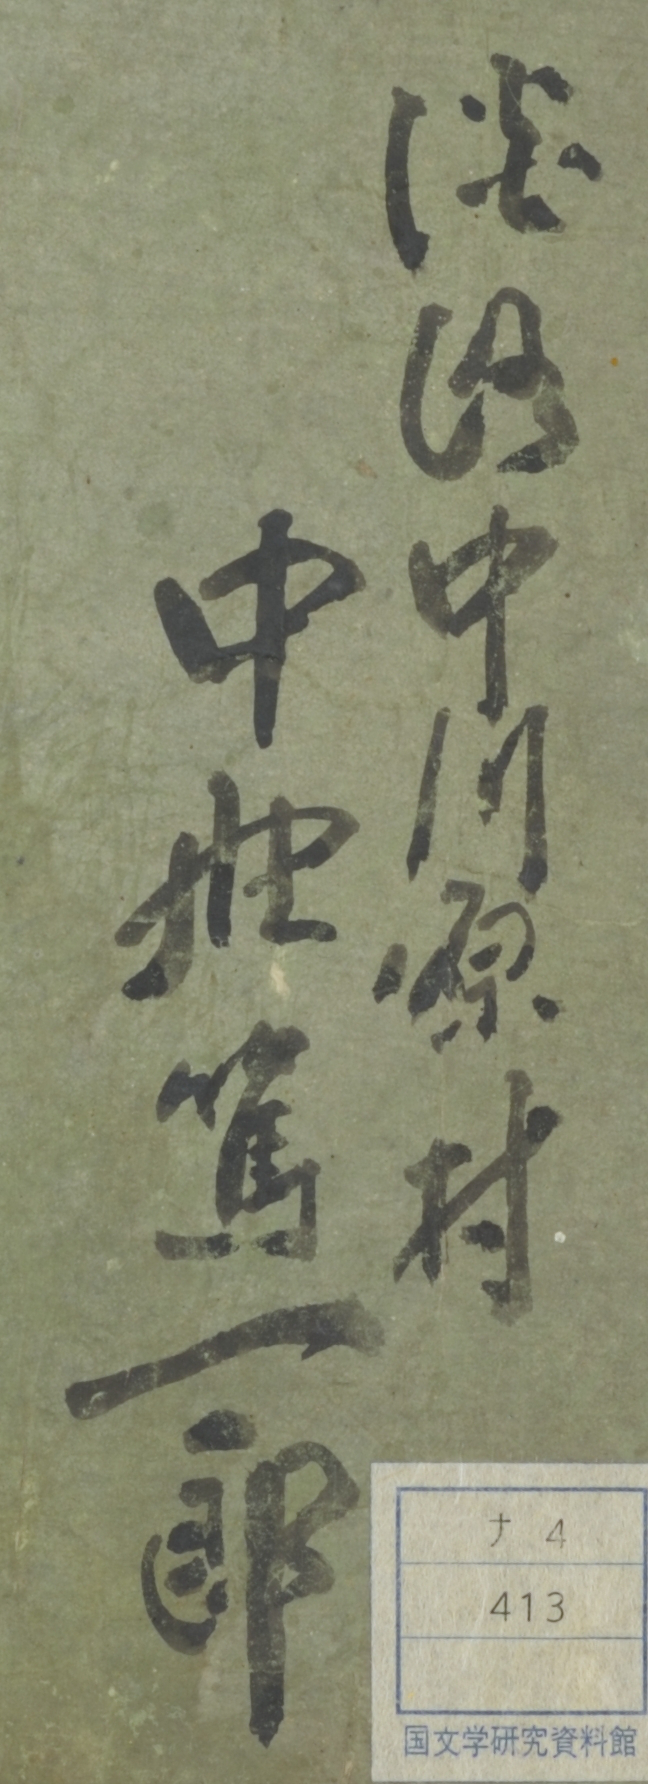 淡路中川原村
中 篤一郎
ナ 4
413
国文学研究資料館